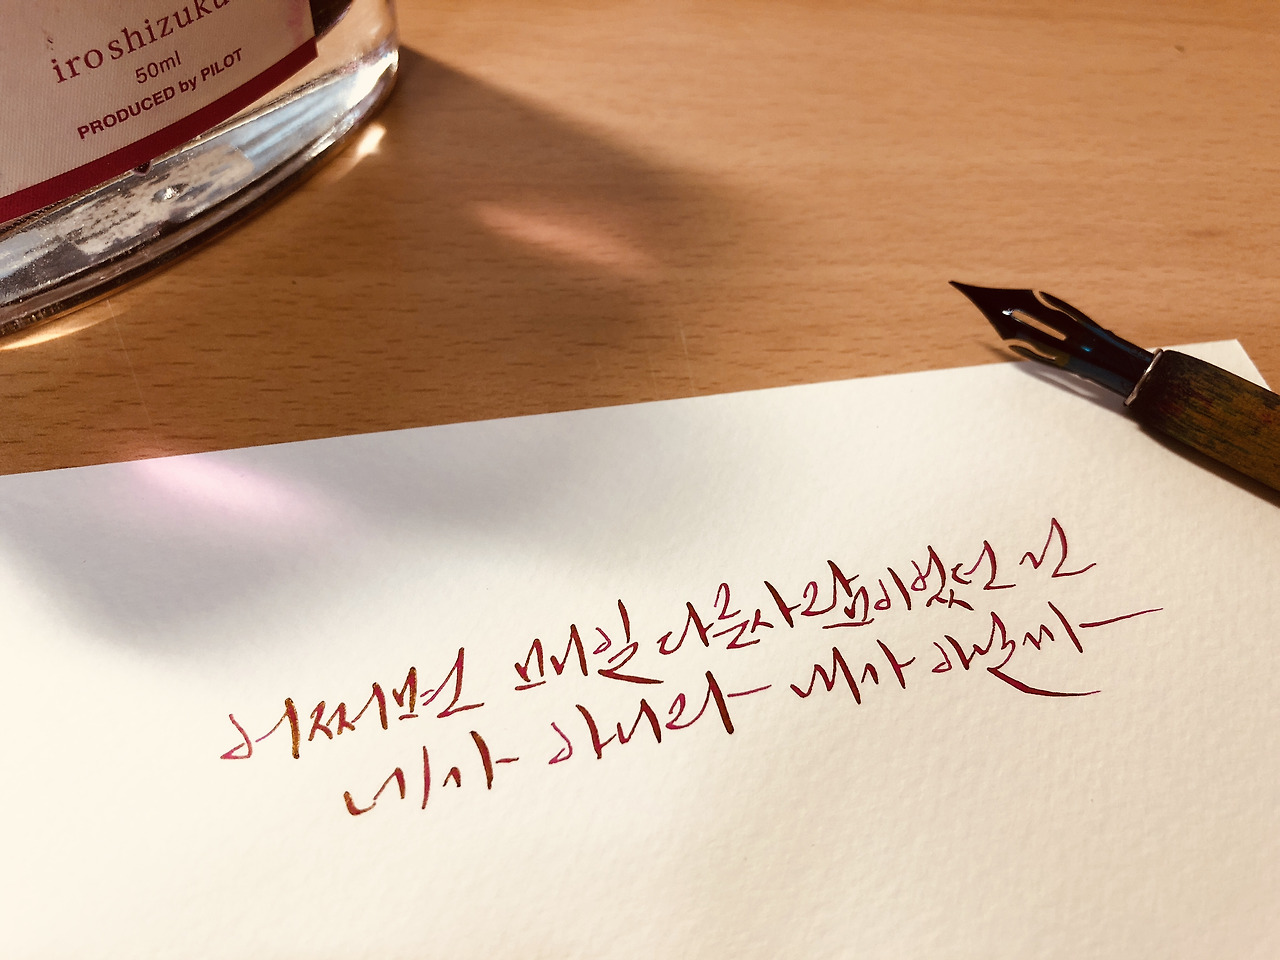 iroshizuku
50ml
PRODUCED by PILOT
어쩌면 매일 다른 사람이었던 건
네가 아니라 내가 아닐까